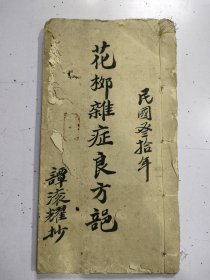 民國叁拾年
花柳雜症良方部
譚液耀抄